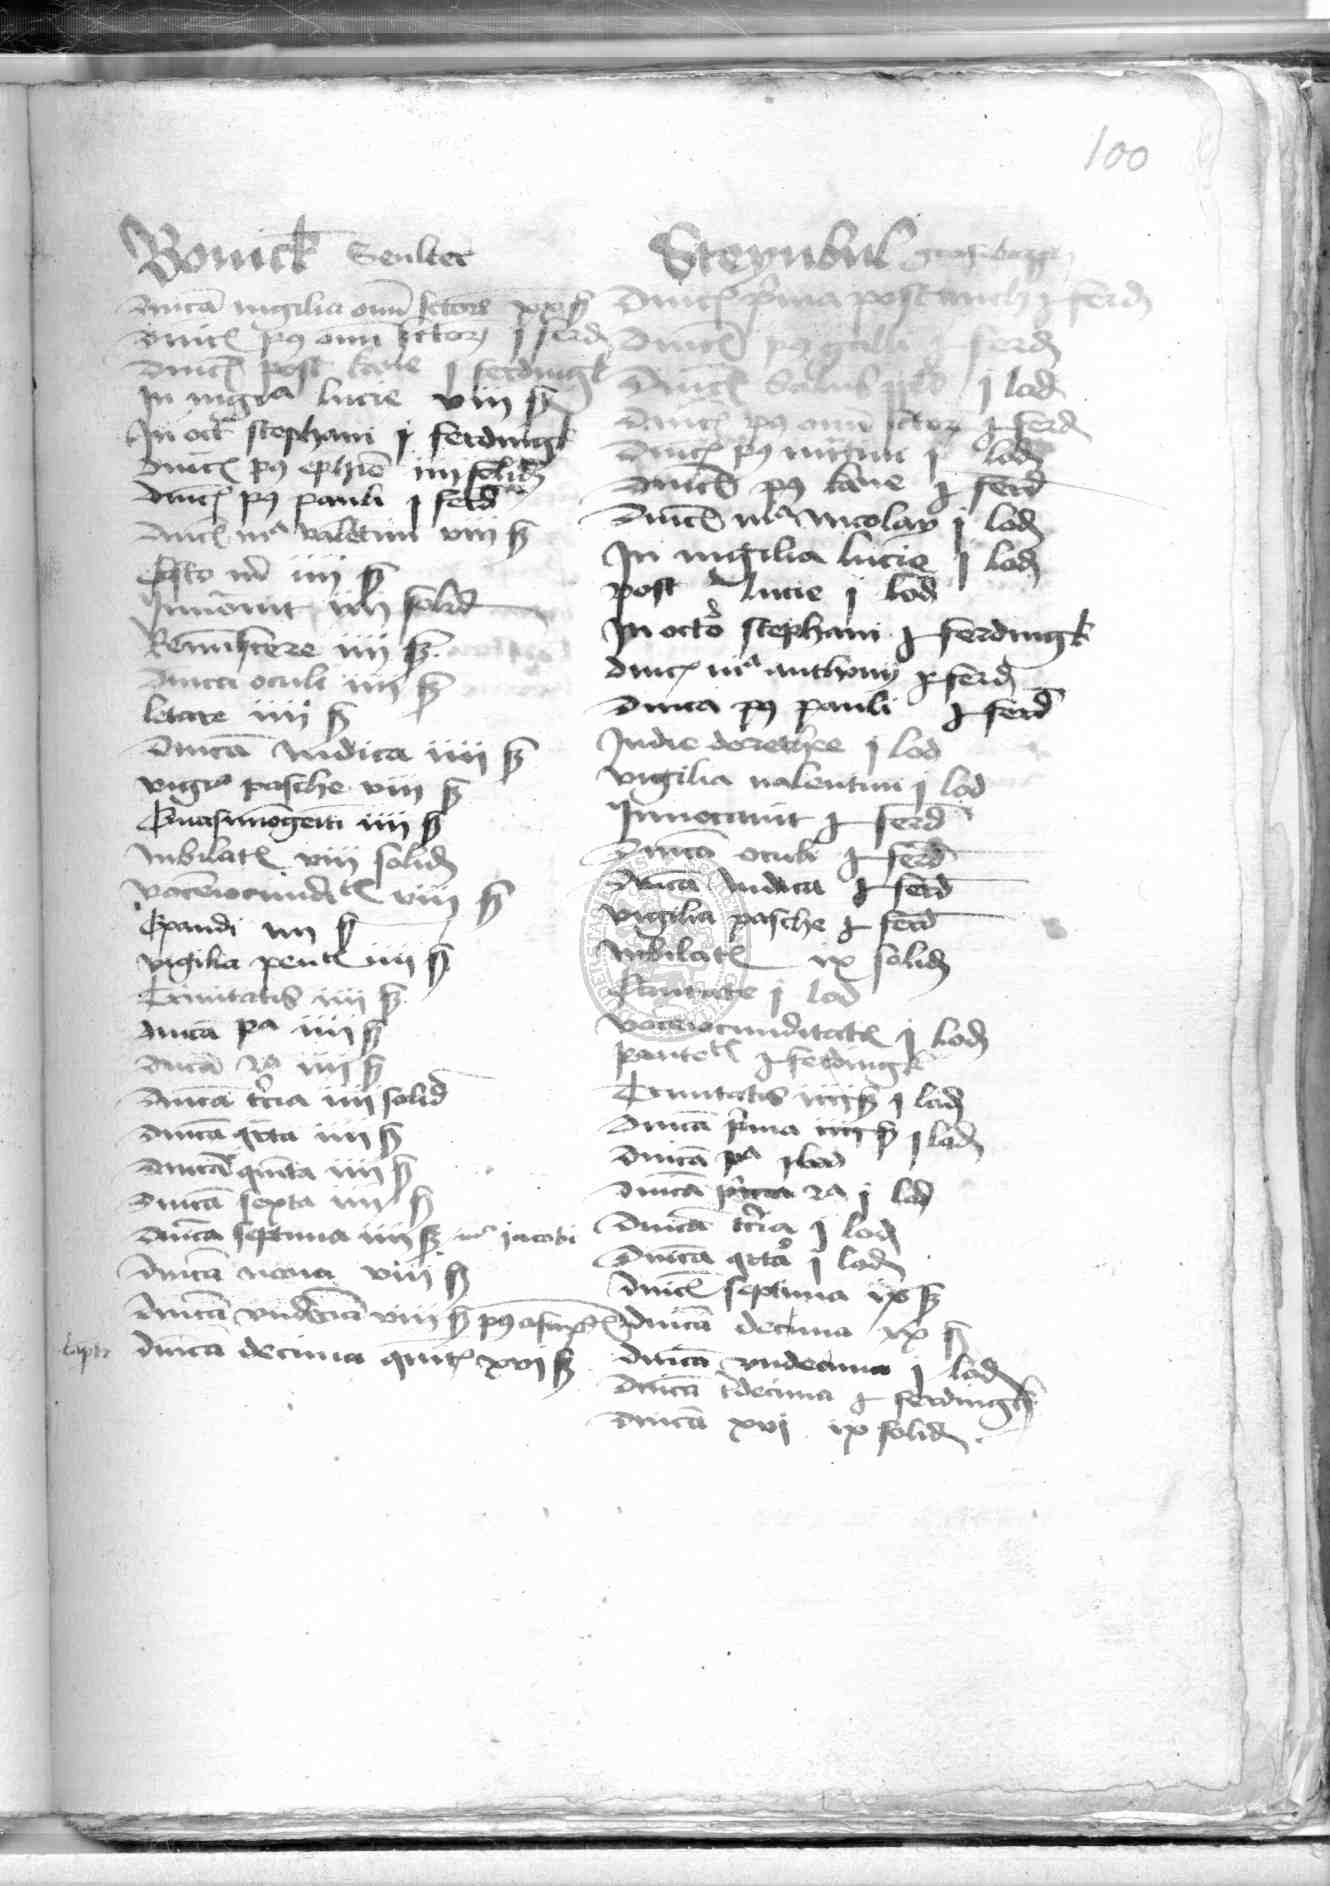 100
Bonick Senltec
dnica vigilia omi sctorꝝ xxv ß
dnicꝭ pꝰ omi sctorꝝ j ferd
dnicꝭ post katie j ferdingk
In vigia lucie viii ß
In octa stephani j ferdingk
dnicꝭ pꝰ ephie iiij solid
dnicꝭ pꝰ pauli j ferd
dnicꝭ in valetini viij ß
Esto m iiij ß
Inuocuit iiij solid
Reminiscere iiij ß
dnica oculi iiij ß
letare iiij ß
dnica Iudica iiij ß
vigia pasche viij ß
Quasimogeiti iiij ß
Iubilatꝭ viij solid
voceiocunditꝭ viij ß
Exaudi iiij ß
vigilia pentꝭ iiij ß
Trinitatis iiij ß
dnica pa iiij ß
dnica 2a iiij ß
dnica tcia iiij solid
dnica qrta iiij ß
dnica quita iiij ß
dnica sexta iiij ß
dnica septima iiij ß in iacobi
dnica nona viij ß
dnica vndecia viij ß pꝰ asupꝭ
dnica decima quitꝭ xvi ß
Steynbul
dnicꝭ pma post mich j ferd
dnicꝭ pꝰ galli j ferd
dnicꝭ j lod
dnicꝭ pꝰ omi sctorꝝ j ferd
dnicꝭ pꝰ mrtini j lod
dnicꝭ pꝰ katie j ferd
dnicꝭ in nicolay j lod
In vigilia lucie j lod
post lucie j lod
In octo stephani j ferdingk
dnicꝭ in anthonij j ferd
dnica pꝰ pauli j ferd
In die dorethee j lod
vigilia valentini j lod
Inuocauit j ferd
dnica oculi j ferd
dnica Iudica j ferd
vigilia pasche j ferd
Iubilatꝭ ix solid
Cantate j lod
voceiocunditatꝭ j lod
pantetꝭ j ferdingk
Trinitatis iiij ß j lod
dnica pma iiij ß j lod
dnica pa j lod
dnica 2a j lod
dnica tcia j lod
dnica qrta j lod
dnicꝭ septima ix ß
dnica decima ix ß
dnica vndecima j lod
dnica tdecima j ferdingk
dnica xvj ix solid